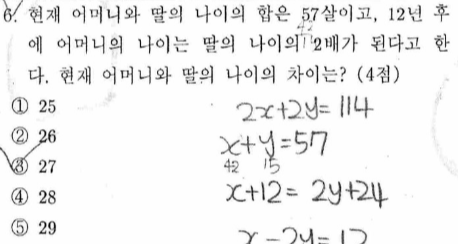 6. 현재 어머니와 딸의 나이의 합은 57살이고, 12년 후
에 어머니의 나이는 딸의 나이의 2배가 된다고 한
다. 현재 어머니와 딸의 나이의 차이는? (4점)
① 25
② 26
③ 27
④ 28
⑤ 29
2x+2y=114
x+y=57
42 15
x+12= 2y+24
x-2y=12